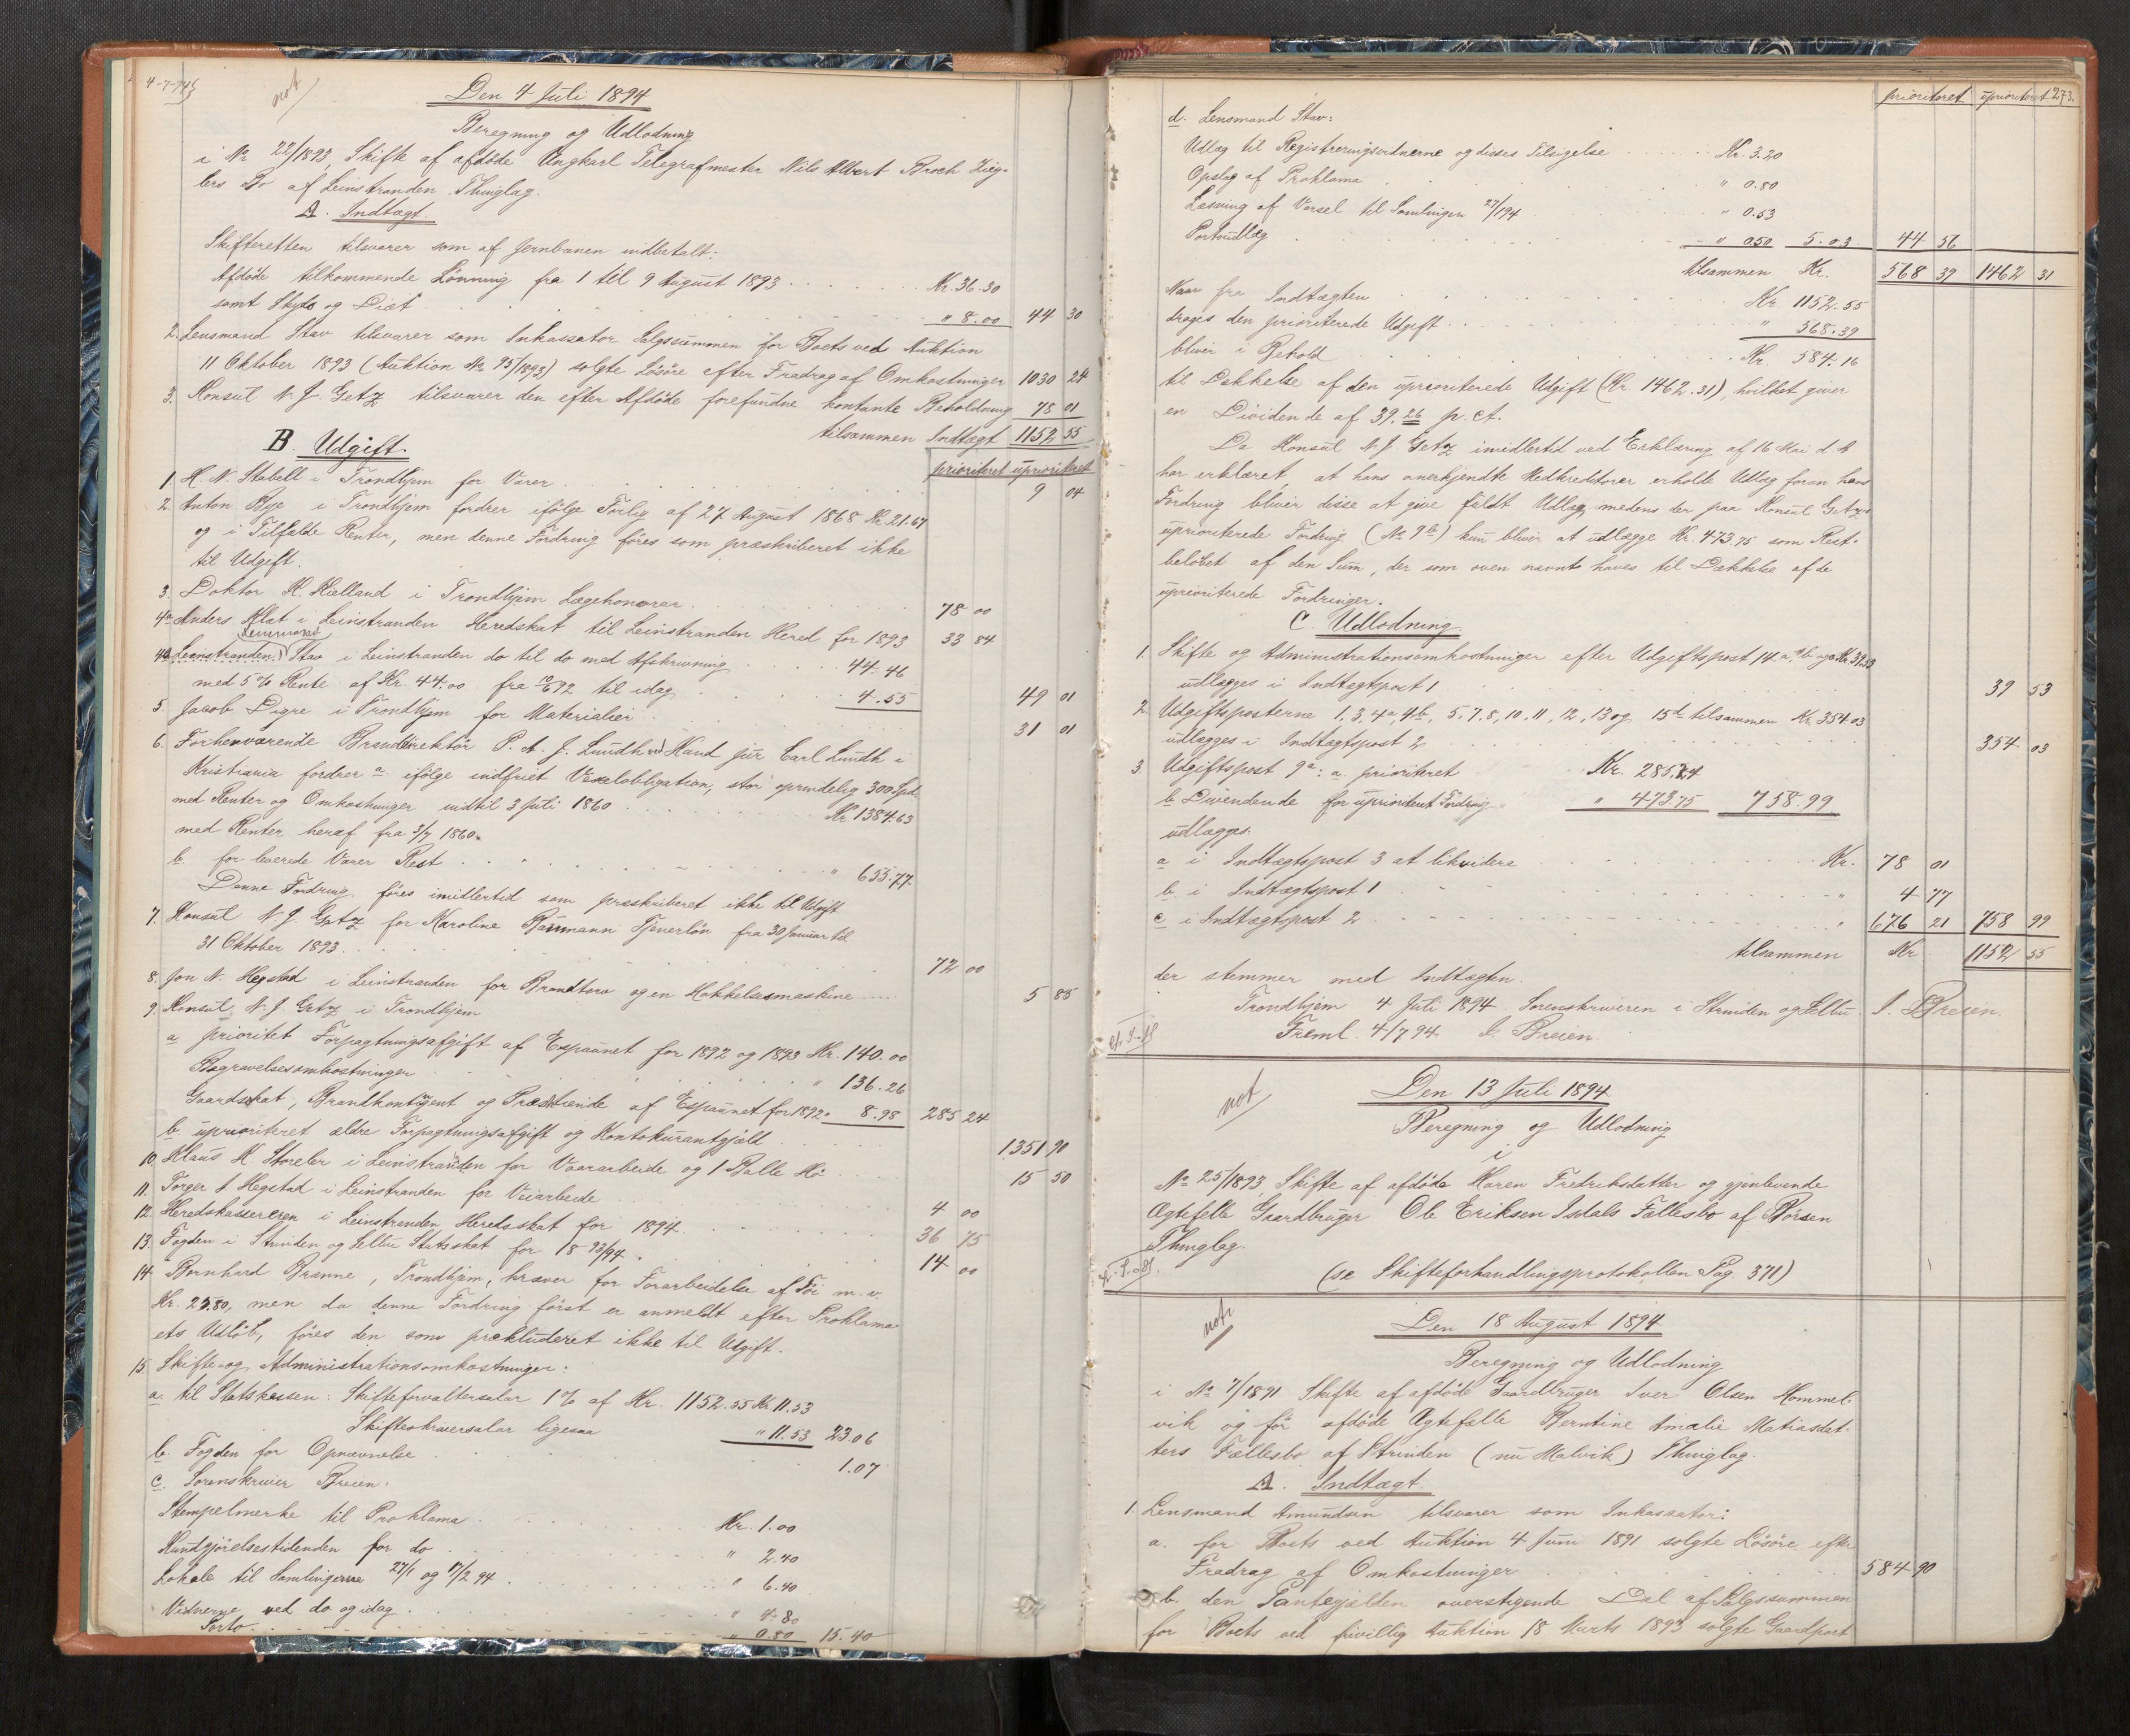 4-7-94
not
Den 4 Juli 1894
Beregning og Udlodning
i No 22/1893, Skifte af afdøde Ungkarl Telegrafmester Nils Albert Broch Zieg-
lers Bo af Leinstranden Thinglag.
A. Indtægt.
Skifteretten tilsvarer som af Jernbanen indbetalt:
Afdøde tilkommende Lønning fra 1 til 9 August 1893 Kr. 36.30
samt Skyds og Diæt " 8.00 44 30
2. Lensmand Stav tilsvarer som Inkassator Salgssummen for Boets ved Auktion
11 Oktober 1893 (Auktion No 95/1893) solgte Løsøre efter Fradrag af Omkostninger 1030 24
3. Konsul N. J. Getz tilsvarer den efter Afdøde forefundne kontante Beholdning 78 01
tilsammen Indtægt 1152 55
B. Udgift.
prioriteret uprioriteret
1. H. N. Stabell i Trondhjem for Varer 9 04
2. Anton Bye i Trondhjem fordrer ifølge Forlig af 27 August 1868 Kr. 21.67
og i Tilfælde Renter, men denne Fordring føres som præskriberet ikke
til Udgift.
3. Doktor K. Kielland i Trondhjem Lægehonorar 78 00
4a Anders Klæt i Leinstranden Heredskat til Leinstranden Hered for 1893 33 84
Lensmand
4b Leinstranden Stav i Leinstranden do til do med Afskrivning 44.46
med 5% Rente af Kr. 44.00 fra 92 til idag 4.55 49 01
5. Jacob Digre i Trondhjem for Materialier 31 01
6. Forhenværende Branddirektør P. A. J. Lundh ved Kand jur Carl Lundh i
Kristiania fordrer a ifølge indfriet Vexelobligation, stor oprindelig 300 Spd.
med Renter og Omkostninger indtil 3 Juli 1860 Kr. 1384.63
med Renter heraf fra 3/7 1860.
b. for leverede Varer Rest " 633.77
Denne Fordring føres imidlertid som præskriberet ikke til Udgift
7. Konsul N. J. Getz for Karoline Baumann Tjenerløn fra 30 Januar til
31 Oktober 1893 72 00
8. Jon N. Hegstad i Leinstranden for Brændtorv og en Hakkelsesmaskine 5 85
9. Konsul N. J. Getz i Trondhjem
a prioritet Forpagtningsafgift af Espaunet for 1892 og 1893 Kr. 140.00
Begravelsesomkostninger " 136.26
Gaardskat, Brandkontigent og Præstetiende af Espaunet for 1892 8.98 285 24
b uprioriteret ældre Forpagtningsafgift og Kontokurantgjæld 1351 90
10. Klaus M. Storeler i Leinstranden for Vaararbeide og 1 Balle Hø 15 50
11. Torger A Hegstad i Leinstranden for Veiarbeide 4 00
12. Heredskassereren i Leinstranden Heredsskat for 1894 36 75
13. Fogden i Strinden og Selbu Statsskat for 18 93/94 14 00
14. Bernhard Brænne, Trondhjem, kræver for Forarbeidelse af Tøi m. v.
Kr. 25.80, men da denne Fordring først er anmeldt efter Proklama
ets Udløb, føres den som prækluderet ikke til Udgift.
15. Skifte- og Administrationsomkostninger:
a. til Statskassen: Skifteforvaltersalær 1% af Kr. 1152.55 Kr. 11.53
Skifteskriversalær ligesaa " 11.53 23.06
b. Fogden for Opnævnelse 1.07
c. Sorenskriver Breien:
Stempelmerke til Proklama Kr. 1.00
Kundgjørelsestidenden for do " 2.40
Lokale til Samlingerne 27/1 og 17/2 94 " 6.40
Vidnerne ved do og idag " 4.80
Porto " 0.80 15.40
prioriteret uprioriteret 273.
d. Lensmand Stav:
Udlæg til Registreringsvidnerne og disses Tilsigelse Kr. 3.20
Opslag af Proklama " 0.80
Læsning af Varsel til Samlingen 27/194 " 0.53
Portoudlæg " 0.50 5.03 44 56
tilsammen Kr. 568 39 1462 31
Naar fra Indtægten Kr. 1152.55
drages den prioriterede Udgift " 568.39
bliver i Behold Kr. 584.16
til Dækkelse af den uprioriterede Udgift (Kr 1462.31), hvilket giver
en Dividende af 39.26 p. ct.
Da Konsul N. J. Getz imidlertid ved Erklæring af 16 Mai d A
har erklæret, at hans anerkjendte Medkreditorer erholde Udlæg foran hans
Fordring bliver disse at give fuldt Udlæg, medens der paa Konsul Getz's
uprioriterede Fordring (No 9b) kun bliver at udlægge Kr. 473.75 som Rest-
beløbet af den Sum, der som oven nævnt haves til Dækkelse af de
uprioriterede Fordringer.
C. Udlodning.
1. Skifte og Administrationsomkostninger efter Udgiftspost 14 a, b og c Kr 39.53
udlægges i Indtægtspost 1 39 53
2. Udgiftsposterne 1, 3, 4a, 4b, 5, 7, 8, 10, 11, 12, 13 og 15d tilsammen Kr. 354.03
udlægges i Indtægtspost 2 354 03
3. Udgiftspost 9a: a. prioriteret Kr. 285.24
b Divendende for uprioriteret Fordring " 473.75 758.99
udlægges:
a i Indtægtspost 3 at likvidere Kr. 78 01
b i Indtægtspost 1 " 4 77
c i Indtægtspost 2 " 676 21 758 99
tilsammen Kr 1152 55
der stemmer med Indtægten.
Trondhjem 4 Juli 1894 Sorenskriveren i Strinden og Selbu. I. Breien.
Freml. 4/7 94. I. Breien.
not
Den 13 Juli 1894
Beregning og Udlodning
i
No 25/1893 Skifte af afdøde Karen Fredriksdatter og gjenlevende
Ægtefelle Gaardbruger Ole Eriksen Isdals Fællesbo af Børsen
Thinglag.
(se Skifteforhandlingsprotokollen Pag. 371)
not
Den 18 August 1894
Beregning og Udlodning
i No 7/1891 Skifte af afdøde Gaardbruger Iver Olsen Hommel-
vik og før afdøde Ægtefælle Berntine Amalie Matiasdat-
ters Fællesbo af Strinden (nu Malvik) Thinglag.
A. Indtægt.
1. Lensmand Amundsen tilsvarer som Inkassator:
a. for Boets ved Auktion 4 Juni 1891 solgte Løsøre efter
Fradrag af Omkostninger 584 90
b. den Pantegjælden overstigende Del af Salgssummen
for Boets ved frivillig Auktion 18 Marts 1893 solgte Gaardpart